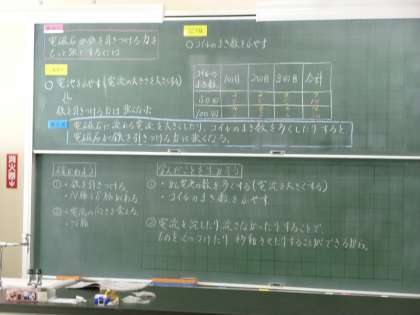 電磁石が鉄を引きつける力を
もっと強くするには
○コイルのまき数をふやす
○電池をふやす(電流の大きさを大きくする)
鉄を引きつける力は強くなった
コイルのまき数 1回目 2回目 3回目 合計
50回
100回
電磁石に流れる電流を大きくしたり、コイルのまき数を多くしたりすると
電磁石が鉄を引きつける力は強くなる。
①・鉄を引きつける
・N極とS極がある
②・電流の向きを変える
①・かん電池の数を多くする(電流を大きくする)
・コイルのまき数をふやす
②電流を流したり流さなかったりすることで、
ものをくっつけたり移動させたりすることができる
消火器